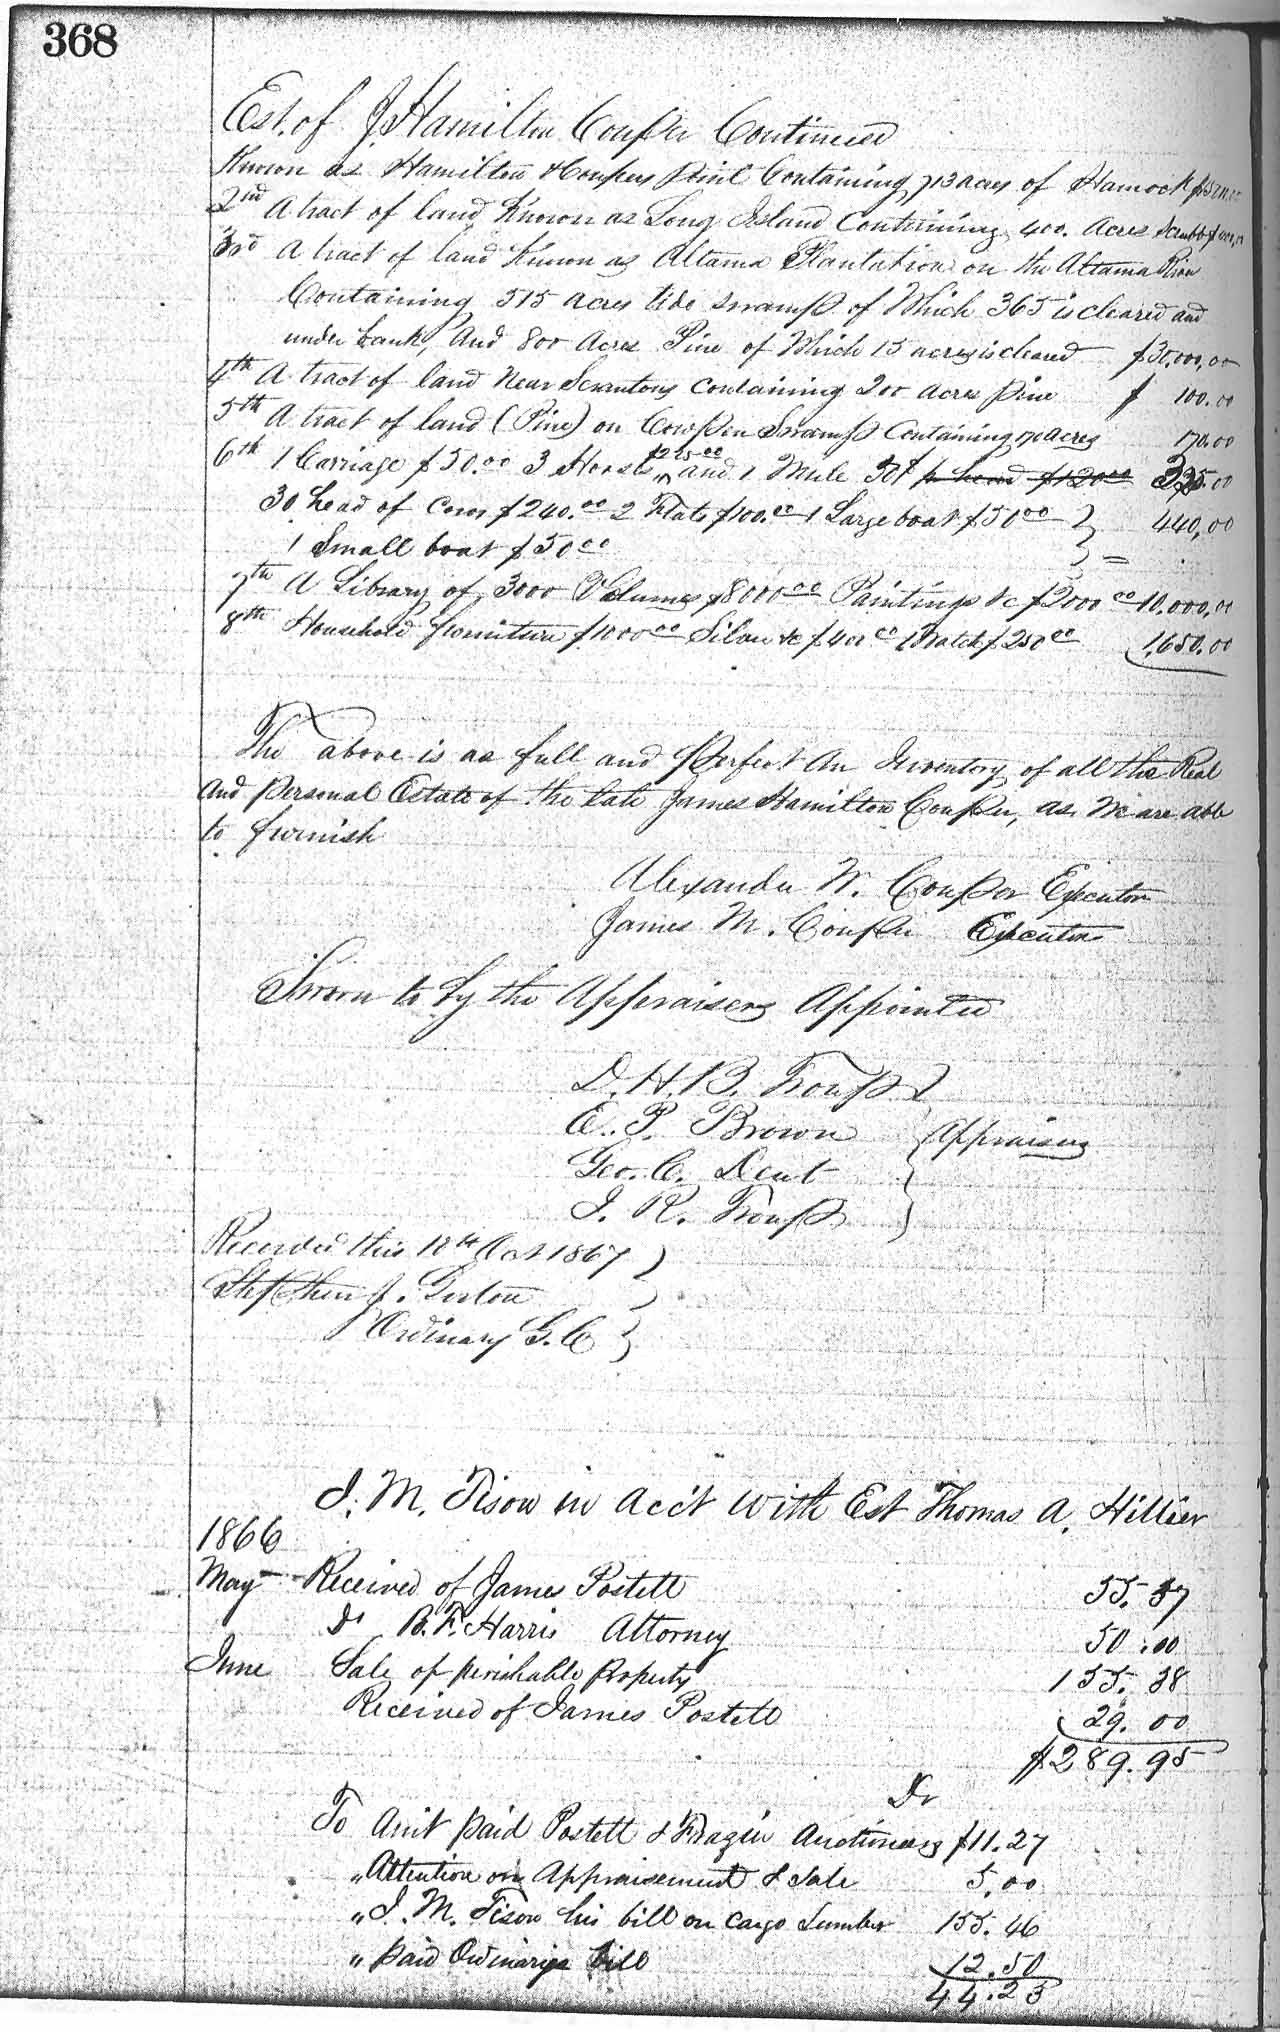 368
Est. of J. Hamilton Couper Continued
Known as Hamilton & Coupers Point Containing 713 acres of Hamock
2nd A tract of land Known as Long Island Containing 400. Acres Scrubb
3rd A tract of land Known as Altama Plantation on the Altama River
Containing 515 acres tide swamp of Which 365 is cleared and
under bank, And 800 Acres Pine of Which 15 acres is cleared $30,000,00
4th A tract of land Near Scrantons Containing 200 acres pine $ 100.00
5th A tract of land (Pine) on Cowpen Swamp Containing 170 acres 170.00
6th 1 Carriage $50.00 3 Horses 225.00 and 1 Mule 50$ pr head $120.00 325.00
30 head of Cows $240.00 2 Flats $100.00 1 Large boat $50.00 } 440,00
1 Small boat $50.00
7th A Library of 3000 Volumes $8000.00 Paintings &c $2000.00 10.000,00
8th Household furniture $1000.00 Silver &c $400.00 1 Watch $250.00 1,650.00
The above is as full and perfect an Inventory of all the Real
and personal Estate of the late James Hamilton Couper, as We are able
to furnish
Alexander W. Couper Executor
James M. Couper Executor
Sworn to by the Appraisers Appointed
D. H. B. Troup
E. P. Brown } Appraisers
Geo. C. Dent
J. R. Troup
Recorded this 10th Oct 1867
Stephen J. Gorton
Ordinary G. C
J. M. Tison in acct with Est Thomas A. Hillier
1866
May Received of James Postell 55.57
Do B. F. Harris Attorney 50.00
June Sale of perishable property 155.38
Received of James Postell 29.00
$289.95
Dr
To Amt paid Postell & Frazier Auctioneers $11.27
„ Attention on Appraisement & Sale 5.00
„ J. M. Tison his bill on cargo Lumber 155.46
„ paid Ordinarys bill 12.50
44.23